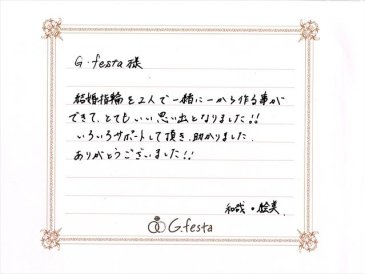 G.festa 様
結婚指輪を2人で一緒に一から作る事が
できて、とてもいい思い出となりました!!
いろいろサポートして頂き、助かりました。
ありがとうございました!!
和哉・絵美
G.festa